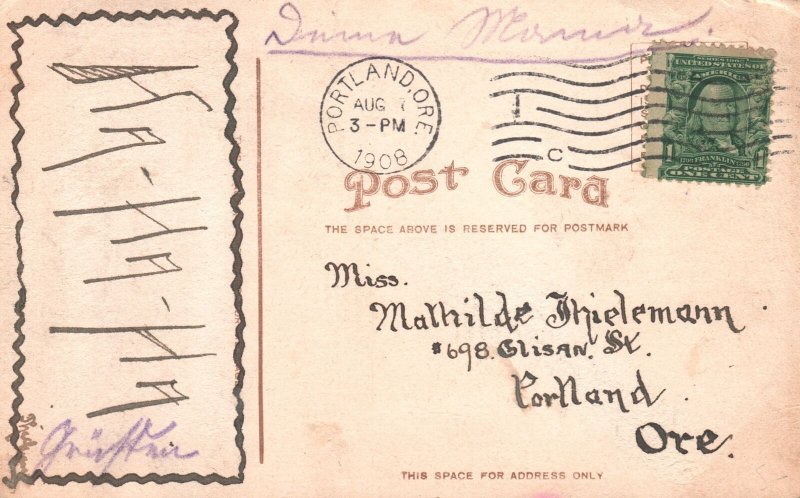 Deine Mama.
PORTLAND, ORE.
AUG
3-PM
1908
C
SERIES 1902
UNITED STATES OF
AMERICA
FRANKLIN
1 1
POSTAGE
ONE CENT
Post Card
THE SPACE ABOVE IS RESERVED FOR POSTMARK
Ha-Ha-Ha
Miss.
Mathilde Thielemann
#698. Glisan. St.
Portland
Ore.
THIS SPACE FOR ADDRESS ONLY